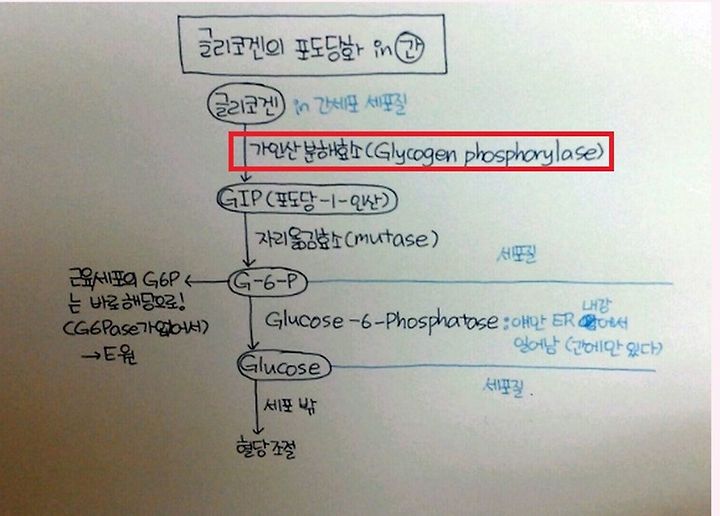 글리코겐의 포도당화 in 간
글리코겐 in 간세포 세포질
가인산분해효소(Glycogen phosphorylase)
G1P(포도당-1-인산)
자리옮김효소(mutase)
세포질
근육세포의 G6P
는 바로 해당으로!
(G6Pase가 없어서)
→E원
G-6-P
Glucose-6-Phosphatase : 얘만 ER 내강에서
일어남 (간에만 있다)
Glucose
세포질.
세포 밖
혈당조절